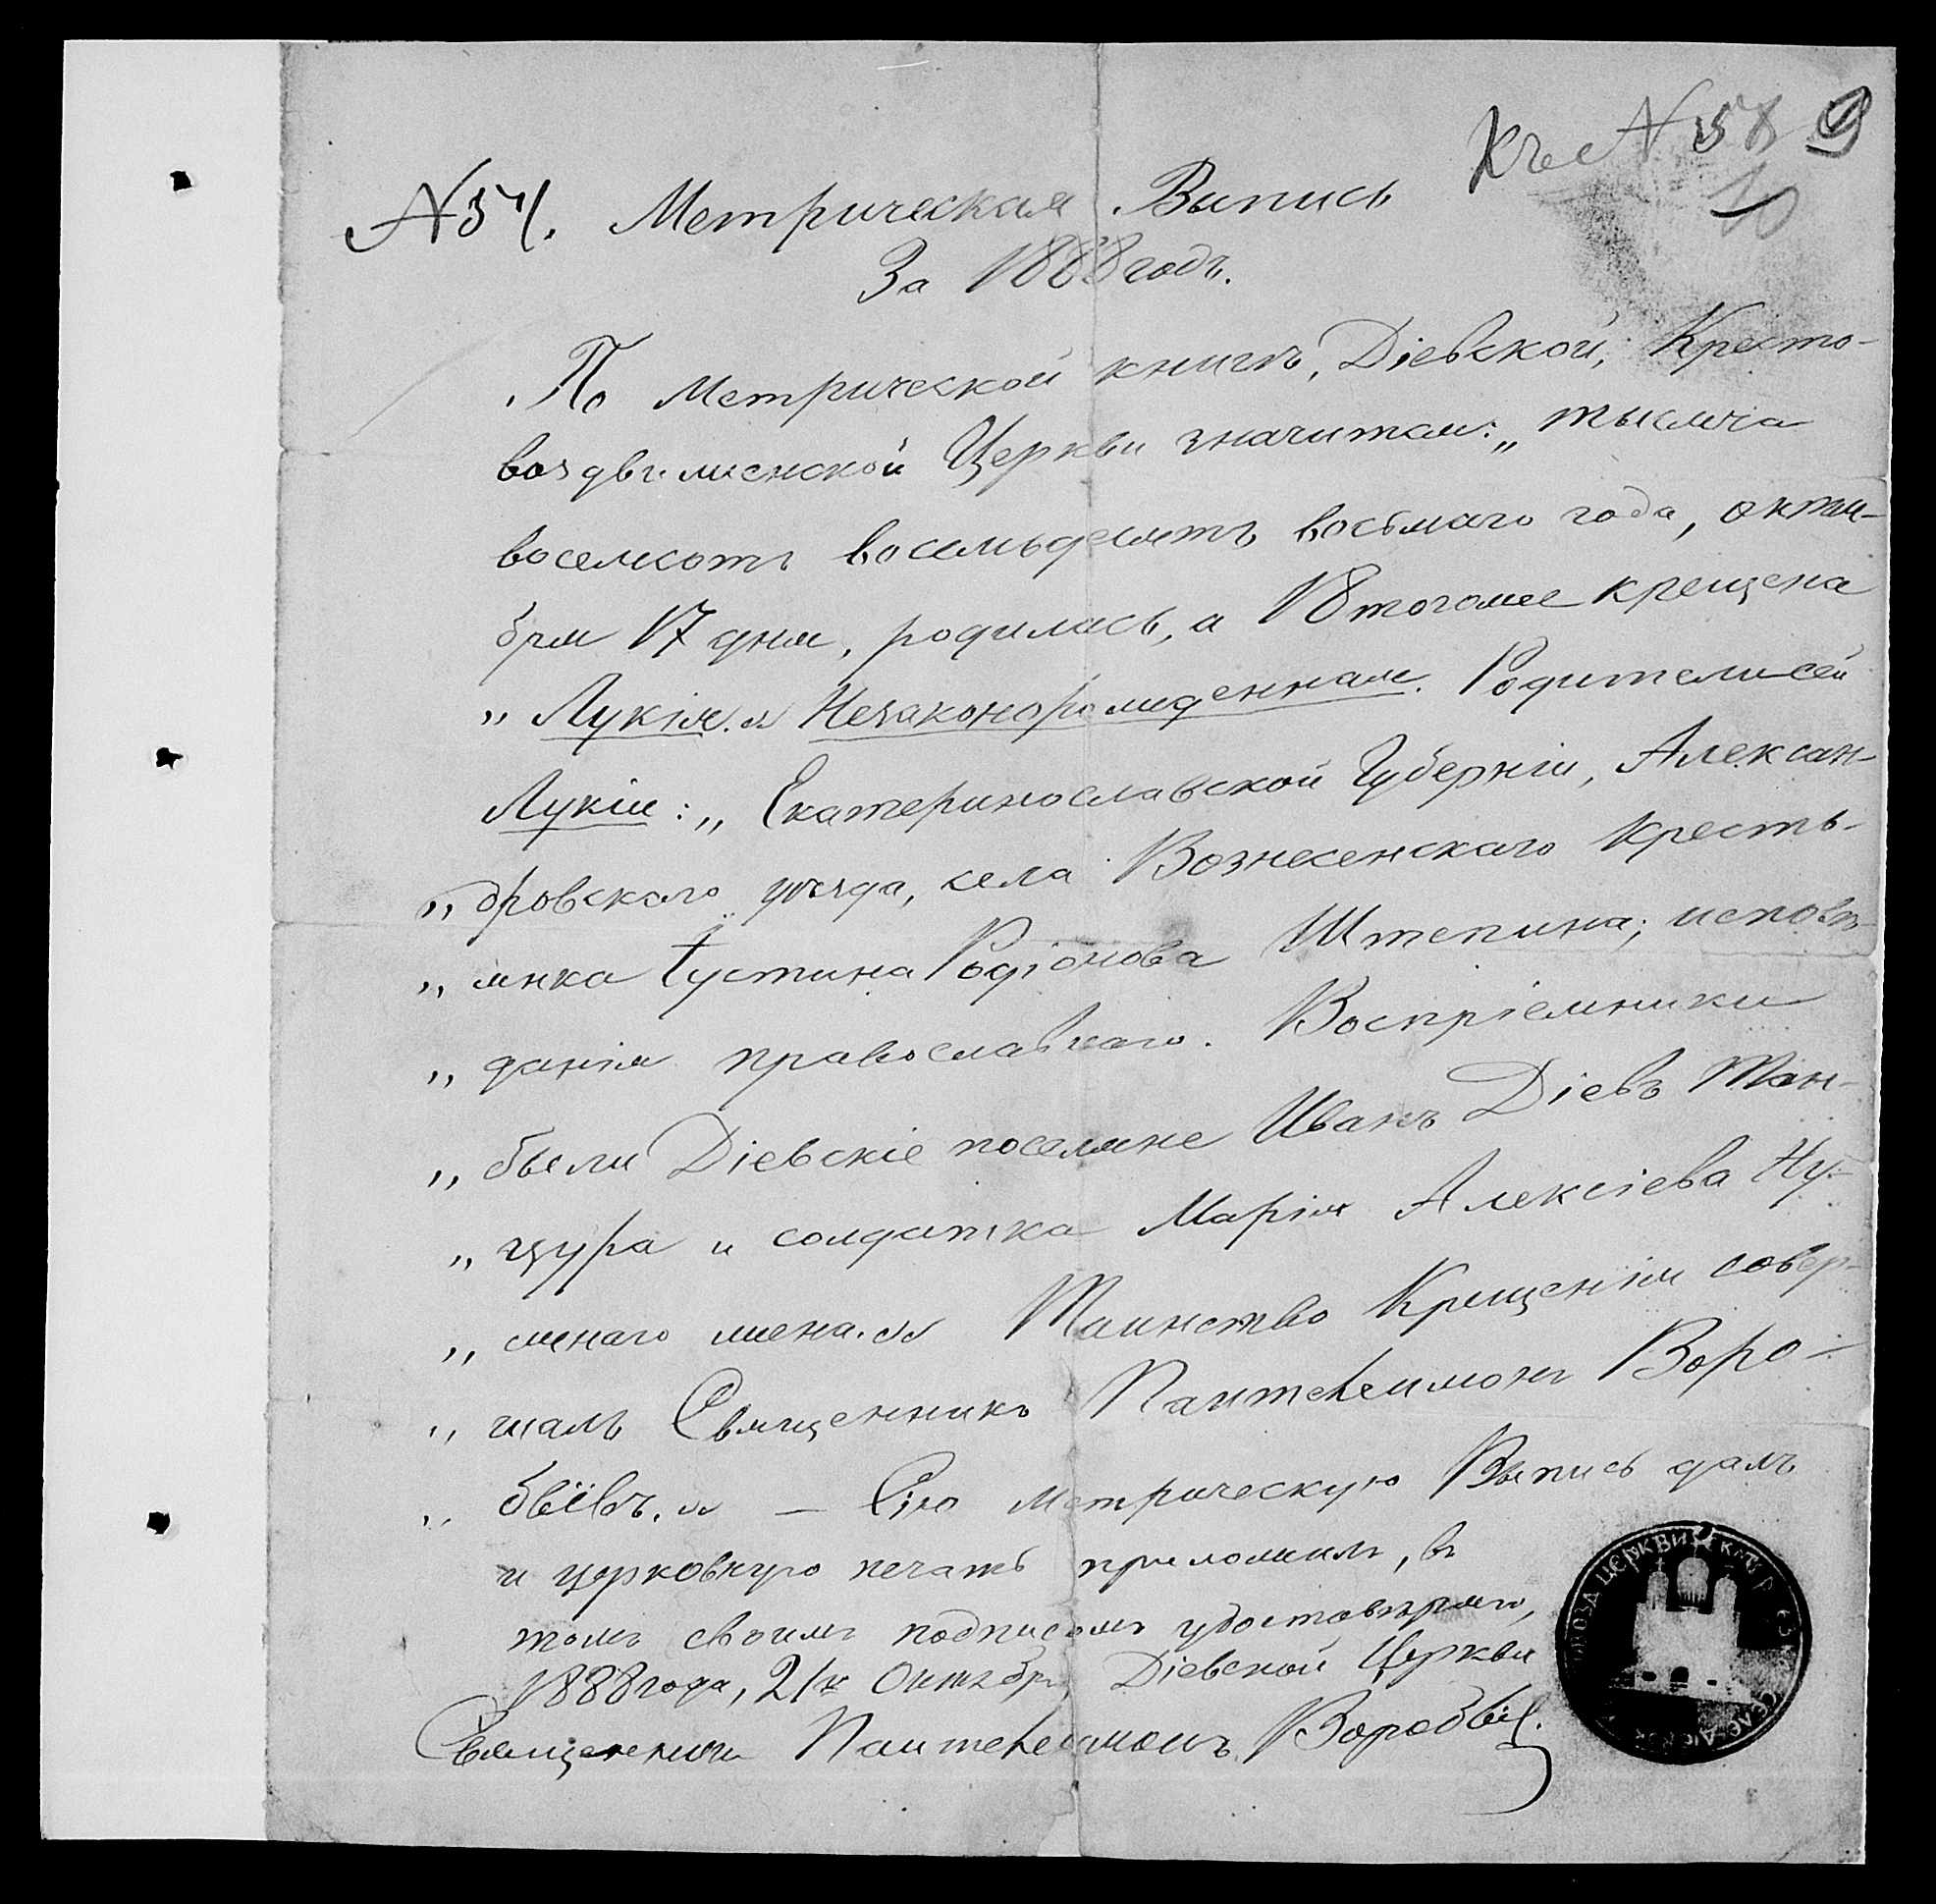 Къ № 58 9
10
№ 54. Метрическая Выпись
За 1888 годъ.
По Метрической книгѣ, Діевской, Кресто-
воздвиженской Церкви значится: „тысяча
восемсотъ восемьдесятъ восьмаго года, октя-
бря 17 дня, родилась, а 18 тогоже крещена
„Лукія." Незаконорожденная. Родители сей
Лукіи: „Екатеринославской Губерніи, Алексан-
„дровскаго уѣзда, села Вознесенскаго кресть-
„янка Іустина Родіонова Штепина; исповѣ-
„данія православнаго. Воспріемники
„были Діевскіе поселяне Иванъ Діевъ Тан-
„цура и солдатка Марія Алексіева Ну-
„ жена." Таинство Крещенія совер-
„шалъ Священникъ Пантелеимонъ Воро-
„бьёвъ." — Сію Метрическую Выпись далъ
и церковную печать приложилъ, въ
томъ своимъ подписомъ удостовѣряю,
1888 года, 21го Октября Діевской Церкви
Священникъ Пантелеимонъ Воробьёв.
ЦЕРКВИ